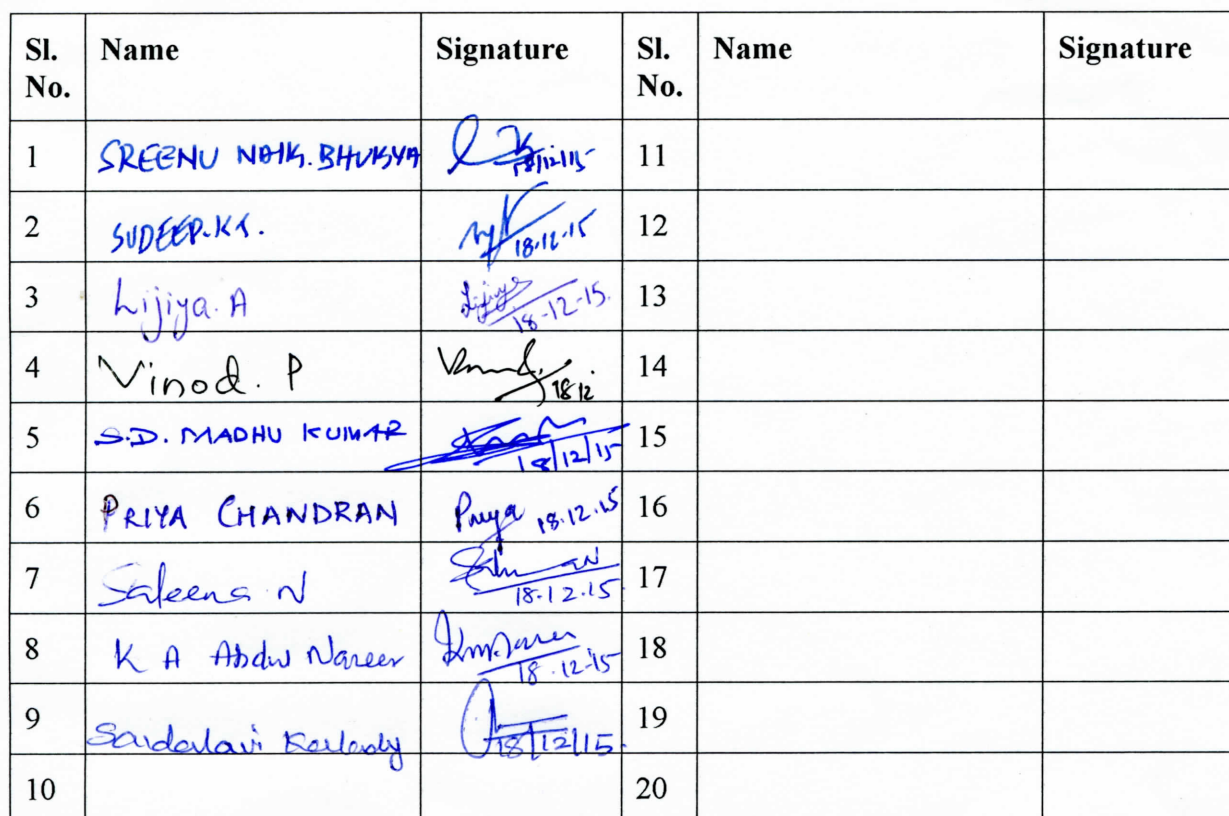 Sl. No. Name Signature Sl. No. Name Signature
1 SREENU NAIK. BHUKYA 18/12/15 11
2 SUDEEP. K S. 18.12.15 12
3 Lijiya. A Lijiya 18-12-15. 13
4 Vinod. P 18 12 14
5 S.D. MADHU KUMAR 18/12/15 15
6 PRIYA CHANDRAN Priya 18.12.15 16
7 Saleena N 18.12.15 17
8 K A Abdul Nazeer 18.12.15 18
9 18/12/15. 19
10 20